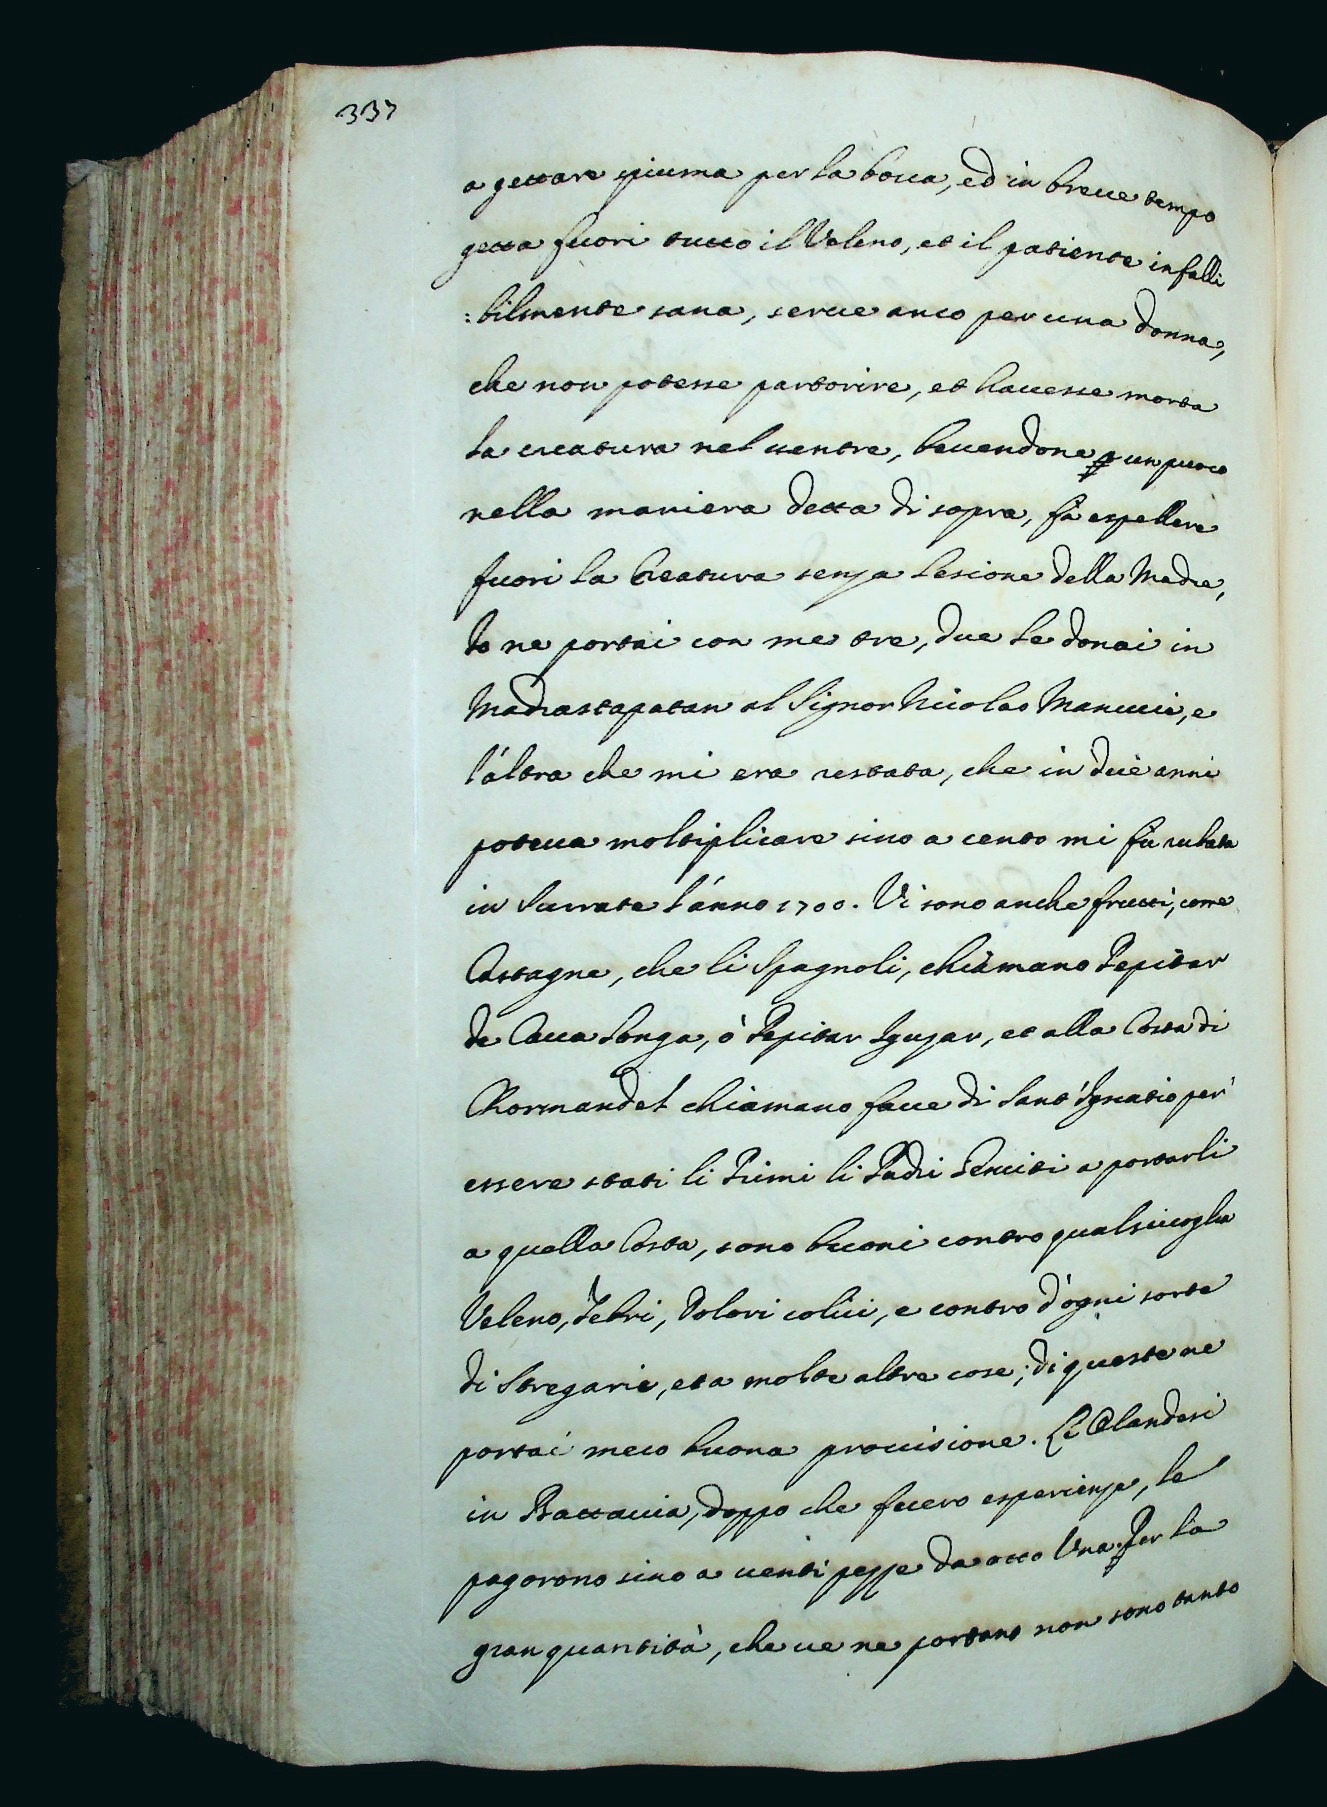 337
a gettare spiuma per la bocca, ed in breue tempo
getta fuori tutto il Veleno, et il patiente infalli
:bilmente sana, serue anco per una donna,
che non potesse partorire, et hauesse morta
la creatura nel uentre, beuendone un puoco
nella maniera detta di sopra, fà espellere
fuori la Creatura senza lesione della Madre,
Io ne portai con me tre, due le donai in
Madrastapatan al Signor Nicolao Manucci, e
l'altra che mi era restata, che in due anni
poteua moltiplicare sino a cento mi fù rubata
in Surrate l'anno 1700. Vi sono anche frutti, come
Castagne, che li Spagnoli, chiamano Pepitar
de Caua longa, ò Pepitar Iguzar, et alla Costa di
Chormandel chiamano faue di Sant'Ignatio per
essere stati li Primi li Padri Jesuiti a portarli
a quella Costa, sono buoni contro qualsiuoglia
Veleno, Febri, Dolori colici, e contro d'ogni sorte
di Stregarie, et a molte altre cose; di queste ne
portai meco buona prouisione. Li Olandesi
in Battauia, doppo che fecero esperienze, le
pagorono sino a uenti pezze da otto Una. Per la
gran quantità, che ue ne portano non sono tanto